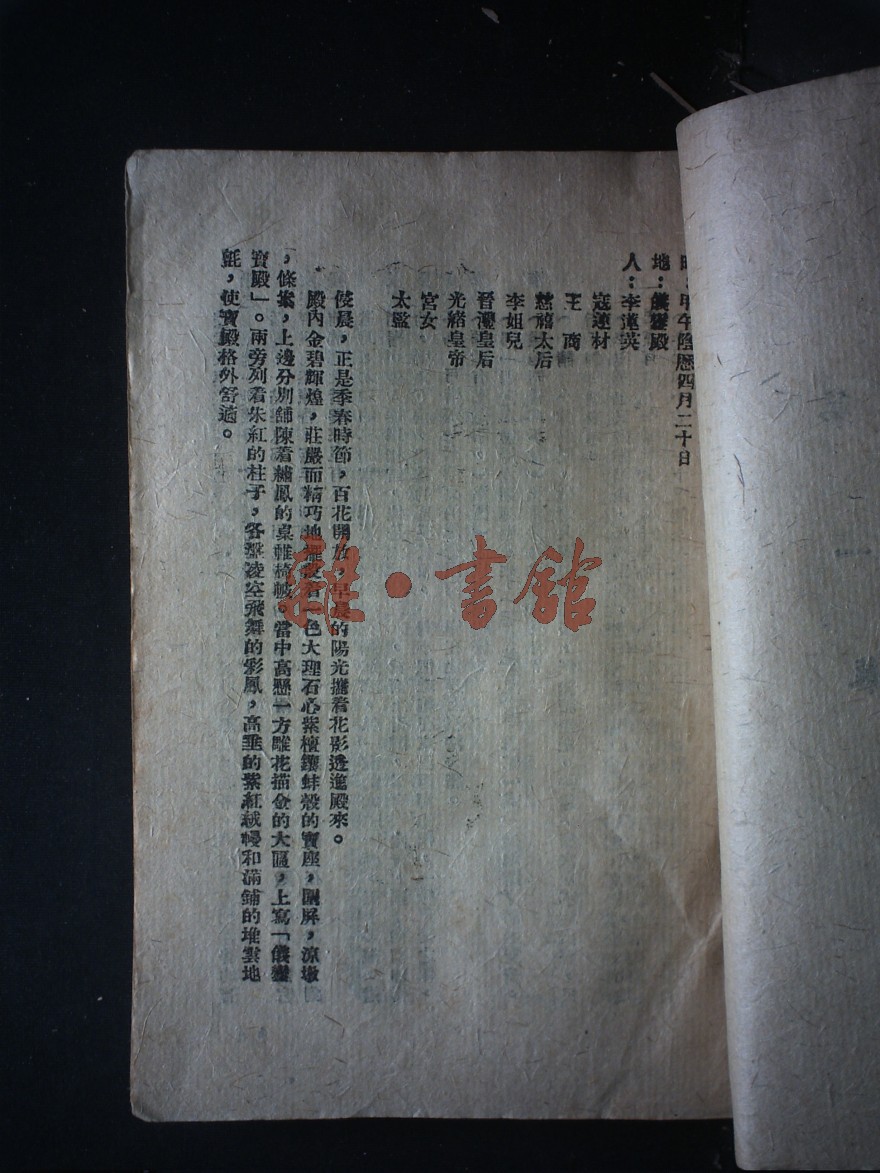 時：甲午陰歷四月二十日
地：儀鸞殿
人：李蓮英
寇連材
王商
慈禧太后
李姐兒
晉灃皇后
光緒皇帝
宮女
太監
俊晨，正是季春時節，百花開放，早晨的陽光擁着花影透進殿來。
殿內金碧輝煌，莊嚴而精巧地擺設着一色大理石心紫檀鑲蚌殼的寶座，圍屏，涼墩
，條案，上邊分別舖陳着繡鳳的桌帷椅帔。當中高懸一方雕花描金的大匾，上寫「儀鸞
寶殿」。兩旁列着朱紅的柱子，各擎凌空飛舞的彩鳳，高垂的紫紅絨幔和滿鋪的堆雲地
氈，使寶殿格外舒適。
雜·書館